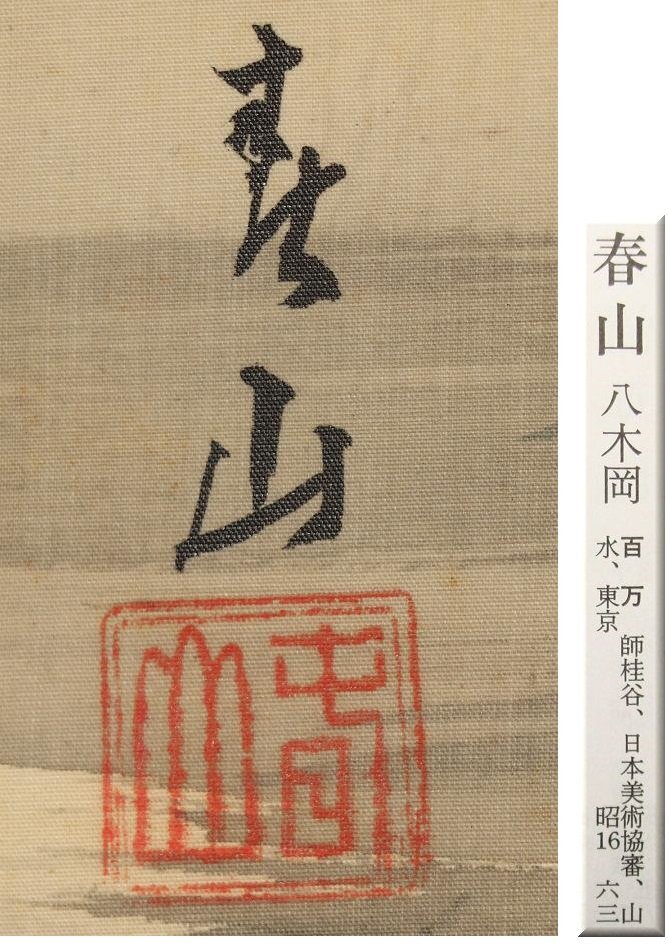 春山
春山
春山 八木岡
百万 師桂谷、日本美術協審、山
水、東京 昭16 六三